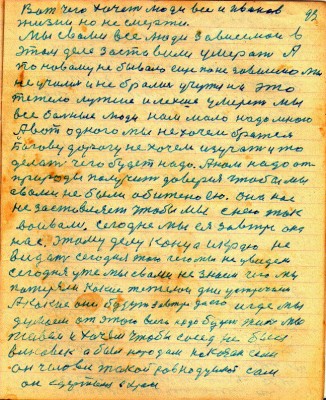 Вот чего хочет люди все и Иванов
жизни но не смерти. 92
Мы с вами все люди зависимое в
этом деле заставили умерать А
по новому не бывало еще пока зависимо мы
не учимся и не брались учути на это
тежело лутше и легше умереть мы
все больные люди нам мало надо много
А вот одного мы не хочем братся
Богову дорогу не хочем изучать и то
делать чего будет надо. А нам надо от
природы получить доверия чтобы мы
с вами не были обижено ею. Она нас
не заставляет чтобы мы с нею так
воивали, сегодня мы ея завтре она
нас. Этому делу конца и краю не
видать сегодня того чего мы не увидем
сегодня уже мы с вами не знаем чего мы
потеряли какие тежелои дни устречали
А какие они будут завтре для
чего и где мы
думаем от этого всего надо будет жить мы
живем и хочем чтобы сосед не был
виновек а был порядам
он человек такой равнодушный сам
он